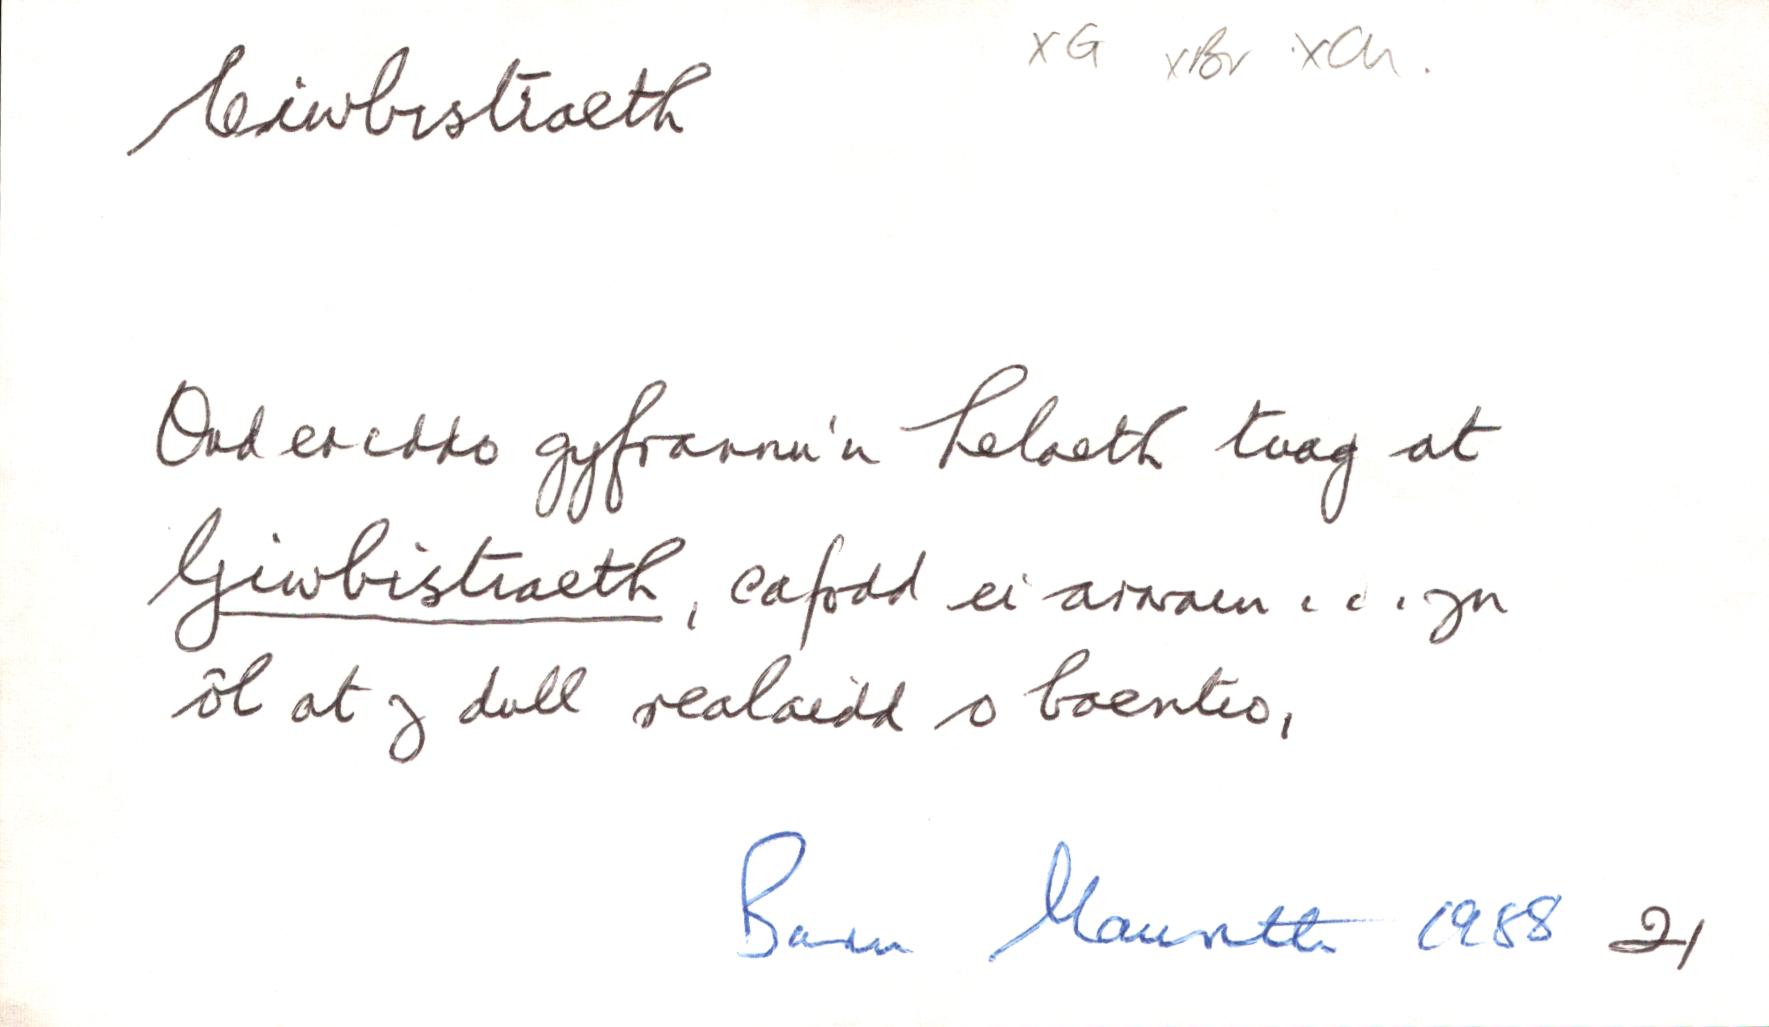 Ciwbistiaeth xG xBr xCh.
Ond er iddo gyfrannu'n helaeth tuag at
Giwbistiaeth, cafodd ei arwain . . . yn
ôl at y dull realaidd o baentio,
Barn Mawrth 1988 21